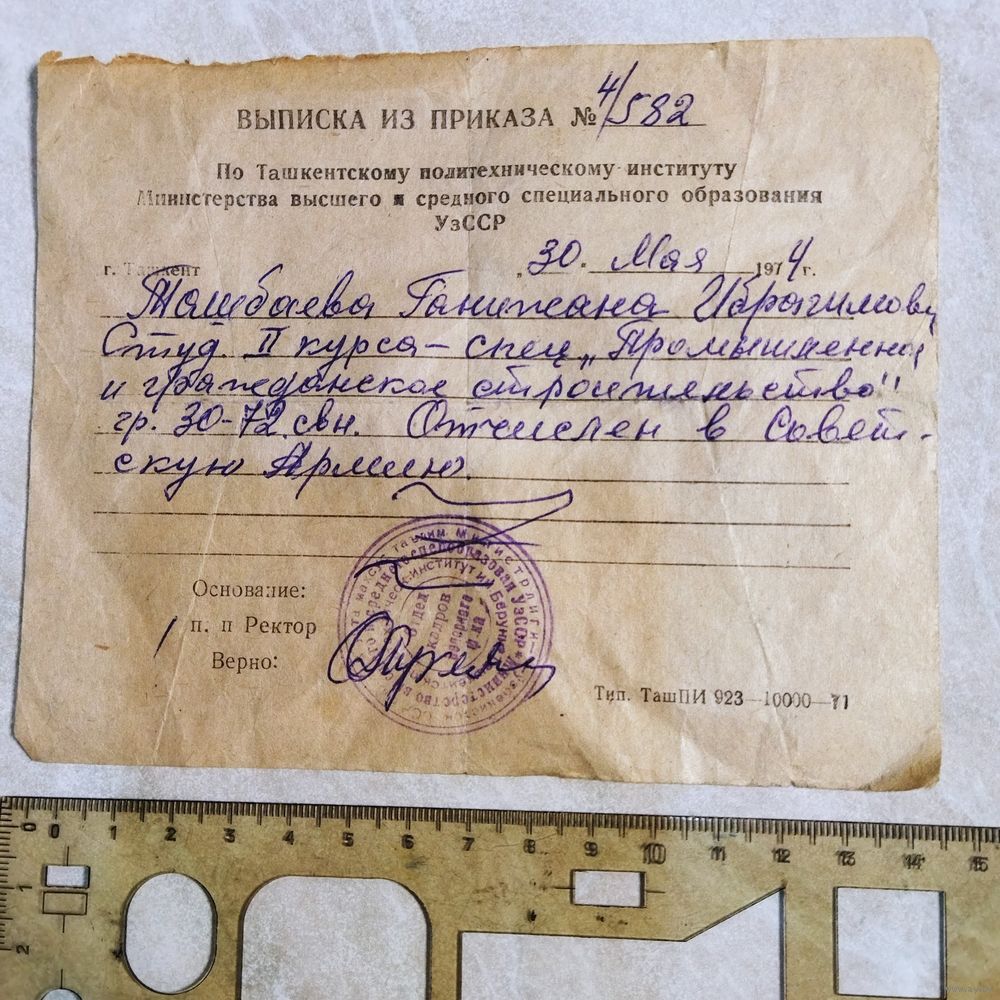 ВЫПИСКА ИЗ ПРИКАЗА № 4/582
По Ташкентскому политехническому институту
Министерства высшего и средного специального образования
УзССР
г. Ташкент „30. Мая 1974 г.
Ташбаева Ганижана Ибрагимович
Студ. II курса – спец „Промышленное
и гражданское строительство"
гр. 30-72 свн. Отчислен в Совет-
скую Армию.
Основание:
п. п Ректор
Верно:
отдел
кадров
Тип. ТашПИ 923—10000—71
0 0 1 2 3 4 5 6 7 8 9 10 11 12 13 14 15
1
2